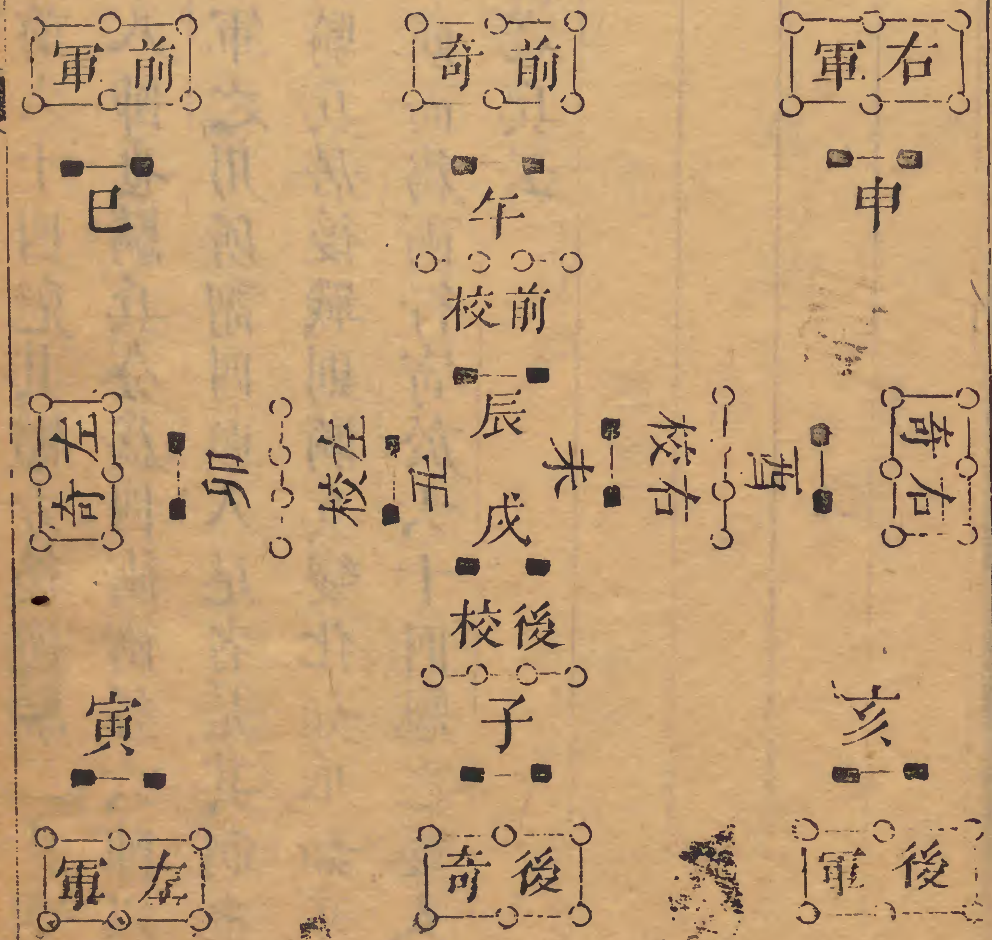 右軍
前奇
前軍
申
午
巳
前校
辰
奇右
酉
校右
未
丑
左校
卯
左奇
戌
後校
子
亥
寅
後軍
後奇
左軍